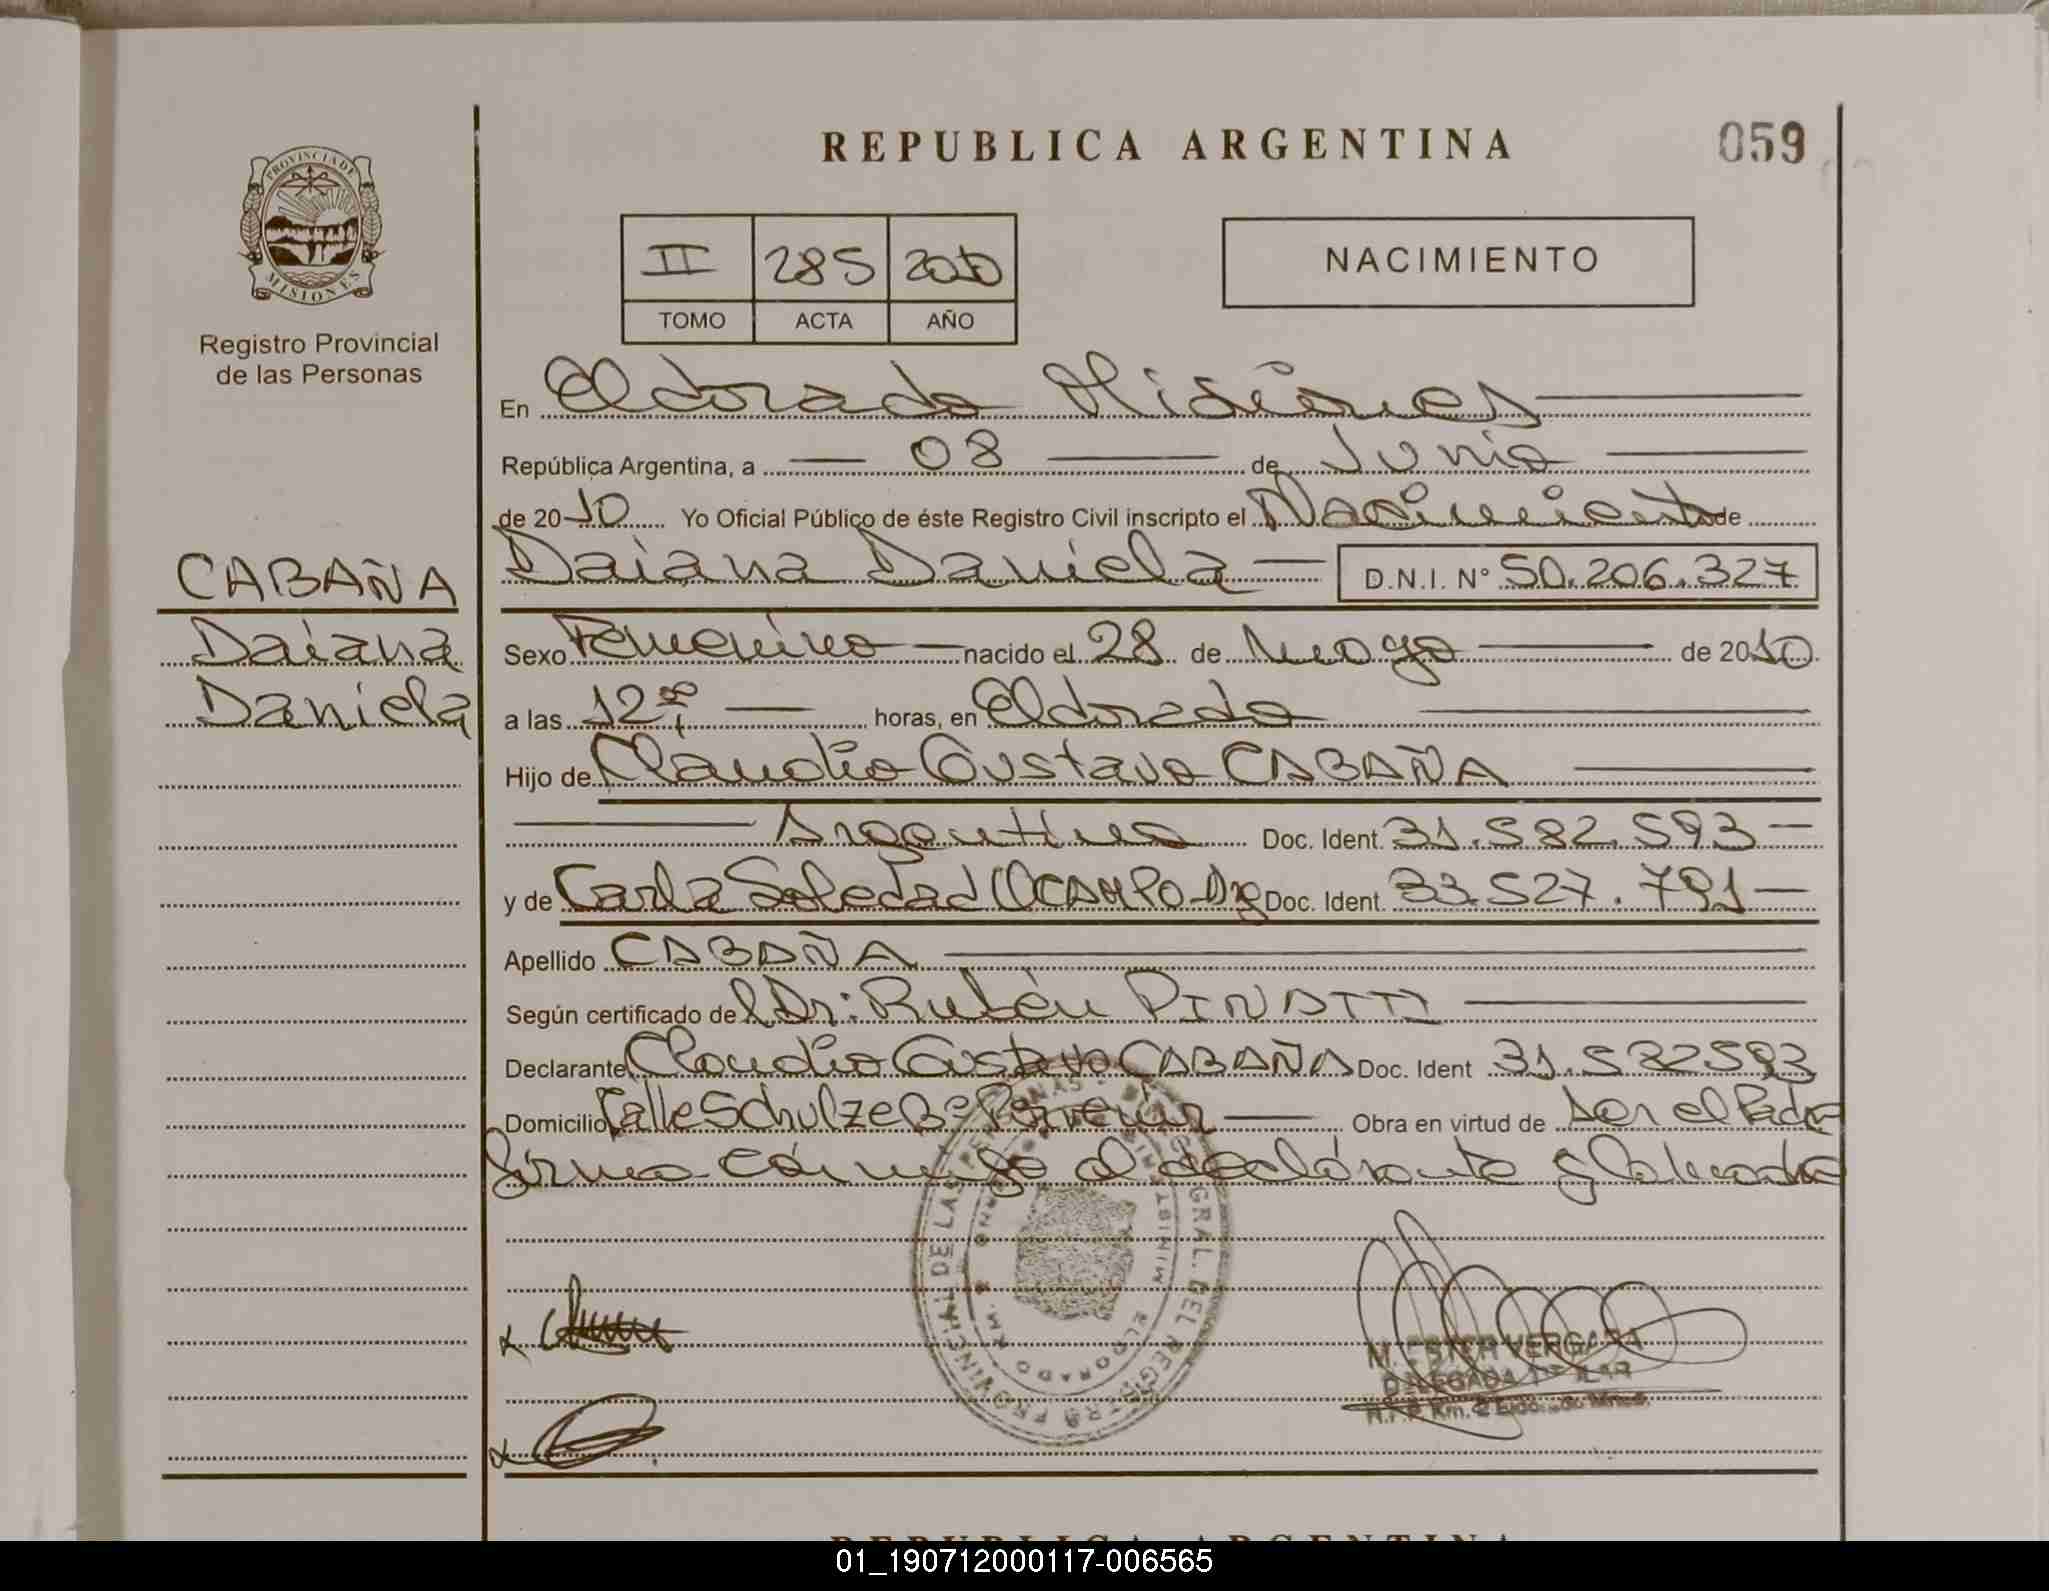 REPUBLICA ARGENTINA
059
PROVINCIA DE
MISIONES
Registro Provincial
de las Personas
II 285 2010
TOMO ACTA AÑO
NACIMIENTO
En Eldorado Misiones
República Argentina, a 08 de Junio
de 2010 Yo Oficial Público de éste Registro Civil inscripto el Nacimiento de
Daiana Daniela D.N.I. N° 50.206.327
CABAÑA
Daiana
Daniela
Sexo Femenino nacido el 28 de mayo de 2010
a las 12 horas, en Eldorado
Hijo de Claudio Gustavo CABAÑA
Argentino Doc. Ident. 31.582.593
y de Carla Soledad OCAMPO Doc. Ident. 33.527.791
Apellido CABAÑA
Según certificado del Dr: Rubén PINATTI
Declarante Claudio Gustavo CABAÑA Doc. Ident 31.582593
Domicilio Calle Schulze Bº Porvenir Obra en virtud de ser el Padre
firma conmigo el declarante y la madre
M. ESTER VERGARA
DELEGADA
01_190712000117-006565